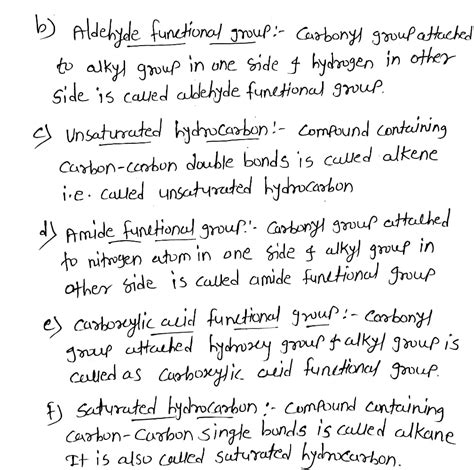 b) Aldehyde functional group:- Carbonyl group attached
to alkyl group in one side & hydrogen in other
side is called aldehyde functional group.
c) Unsaturated hydrocarbon:- Compound containing
Carbon-carbon double bonds is called alkene
i.e. called unsaturated hydrocarbon
d) Amide functional group:- Carbonyl group attached
to nitrogen atom in one side & alkyl group in
other side is called amide functional group
e) Carboxylic acid functional group:- Carbonyl
group attached hydroxy group & alkyl group is
called as Carboxylic acid functional group.
f) Saturated hydrocarbon:- Compound containing
carbon-Carbon single bonds is called alkane
It is also called saturated hydrocarbon.